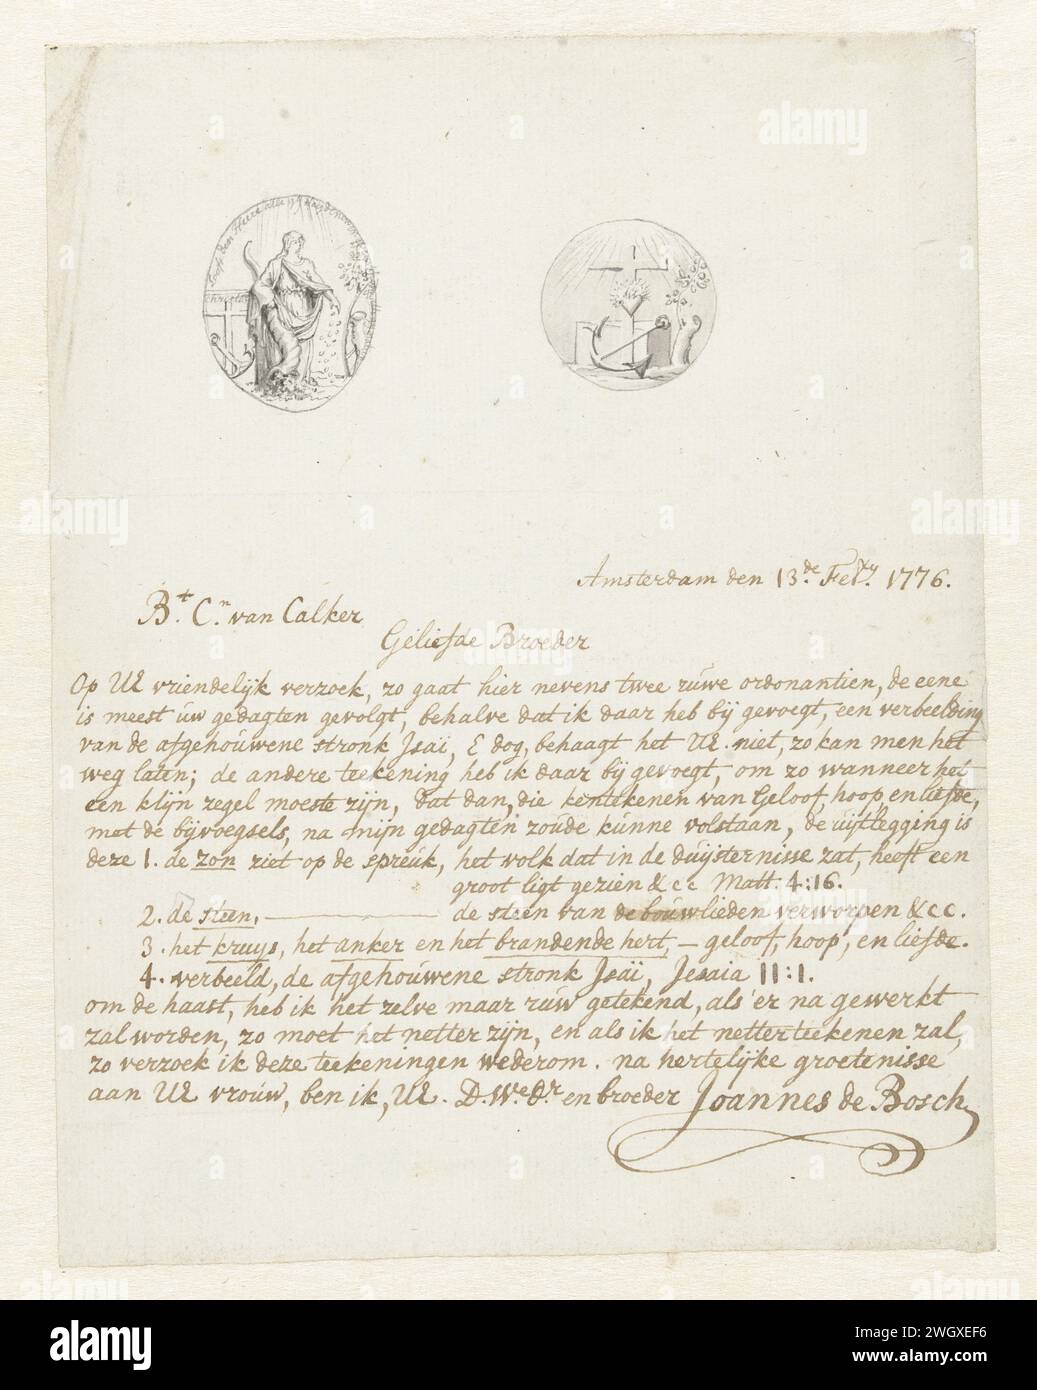 Looft den Heere alle
Christo
Amsterdam den 13.de Febry. 1776.
B.t C.n van Calker
Geliefde Broeder
Op UE vriendelijk verzoek, zo gaat hier nevens twee rúwe ordonantien, de eene
is meest úw gedagten gevolgt, behalve dat ik daar heb bij gevoegt, een verbeelding
van de afgehoúwene stronk Jsaï, & dog, behaagt het UE. niet, zo kan men het
weg laten; de andere teekening heb ik daar bij gevoegt, om zo wanneer het
een klijn zegel moeste zijn, dat dan, die kentekenen van Geloof, hoop, en liefde,
met de bijvoegsels, na mijn gedagten zoúde kúnne volstaan, de uijtlegging is
deze 1. de zon ziet op de spreúk, het volk dat in de dúijsternisse zat, heeft een
groot ligt gezien &cc Matt: 4:16.
2. de steen, — de steen van de boúwlieden verworpen &cc.
3. het kruys, het anker en het brandende hert, — geloof, hoop, en liefde.
4. verbeeld, de afgehoúwene stronk Jsaï, Jesaia 11:1.
om de haast, heb ik het zelve maar rúw getekend, als er na gewerkt
zal worden, zo moet het netter zijn, en als ik het netter teekenen zal,
zo verzoek ik deze teekeningen wederom. na hertelijke groetenisse
aan UE vroúw, ben ik, UE. D.We.Dr. en broeder Joannes de Bosch
alamy
Image ID: 2WGXEF6
www.alamy.com